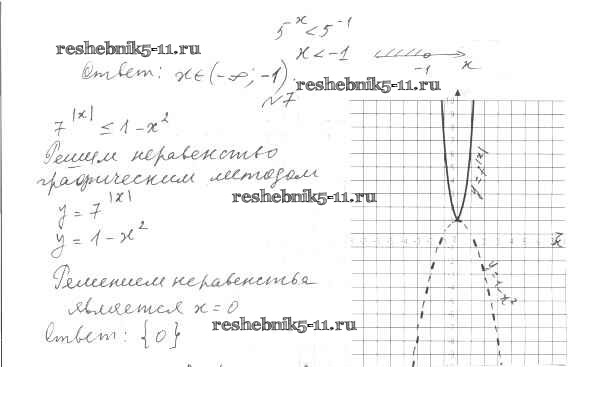 5^x < 5^-1
reshebnik5-11.ru
x < -1
-1
x
Ответ: x∈(-∞; -1).
reshebnik5-11.ru
№7
7^|x| ≤ 1-x^2
Решим неравенство
графическим методом
y = 7^|x|
reshebnik5-11.ru
y = 1-x^2
y = 7^|x|
y = 1-x^2
Решением неравенства
является x = 0
reshebnik5-11.ru
Ответ: {0}